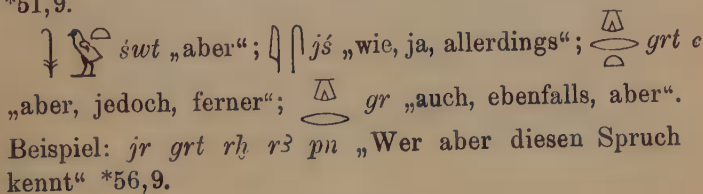 *51,9.
𓇓𓅱𓏏 śwt „aber“; 𓇋𓋴 jś „wie, ja, allerdings“; 𓎼𓂋𓏏 grt c
„aber, jedoch, ferner“; 𓎼𓂋 gr „auch, ebenfalls, aber“.
Beispiel: jr grt rḫ rꜣ pn „Wer aber diesen Spruch
kennt“ *56,9.